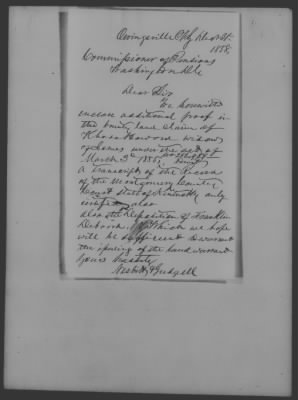 Owingsville Ky
1858
Commissioner of Pensions
Washington D.C.
Dear Sir
We herewith
enclose additional proof in
the bounty land claim of
widow
of James under the act of
March 3d 1855,
A transcript of the Record
of the Montgomery County
Court State of Kentucky duly
certified also
also the Deposition of Franklin
which we hope
will be sufficient to warrant
the issuing of the land warrant
Yours
Nesbitt & Gudgell